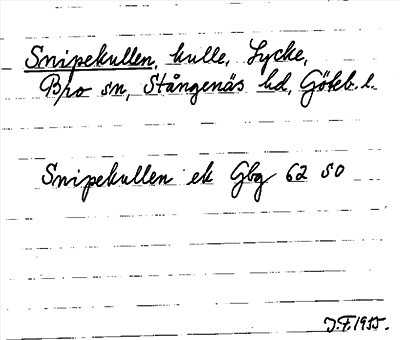 Snipekullen, kulle, Lycke,
Bro sn, Stångenäs hd, Göteb. l.
Snipekullen ek Gbg 62 SO
J.F. 1955.